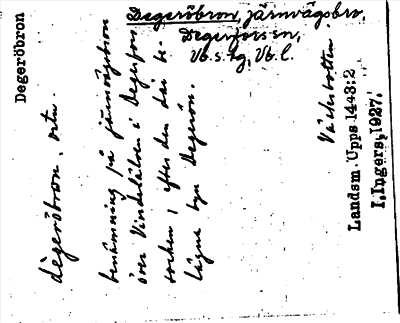 Degeröbron
Degeröbron, järnvägsbro,
Degerfors sn,
Vb. s. hg, Vb. l.
dègeröbron. ortn.
benämning på järnvägsbron
över Vindelälven i Degerfors
socken, efter den där be-
lägna byn Degerön.
Västerbotten.
Landsm. Upps 1443:2
I. Ingers, 1927.